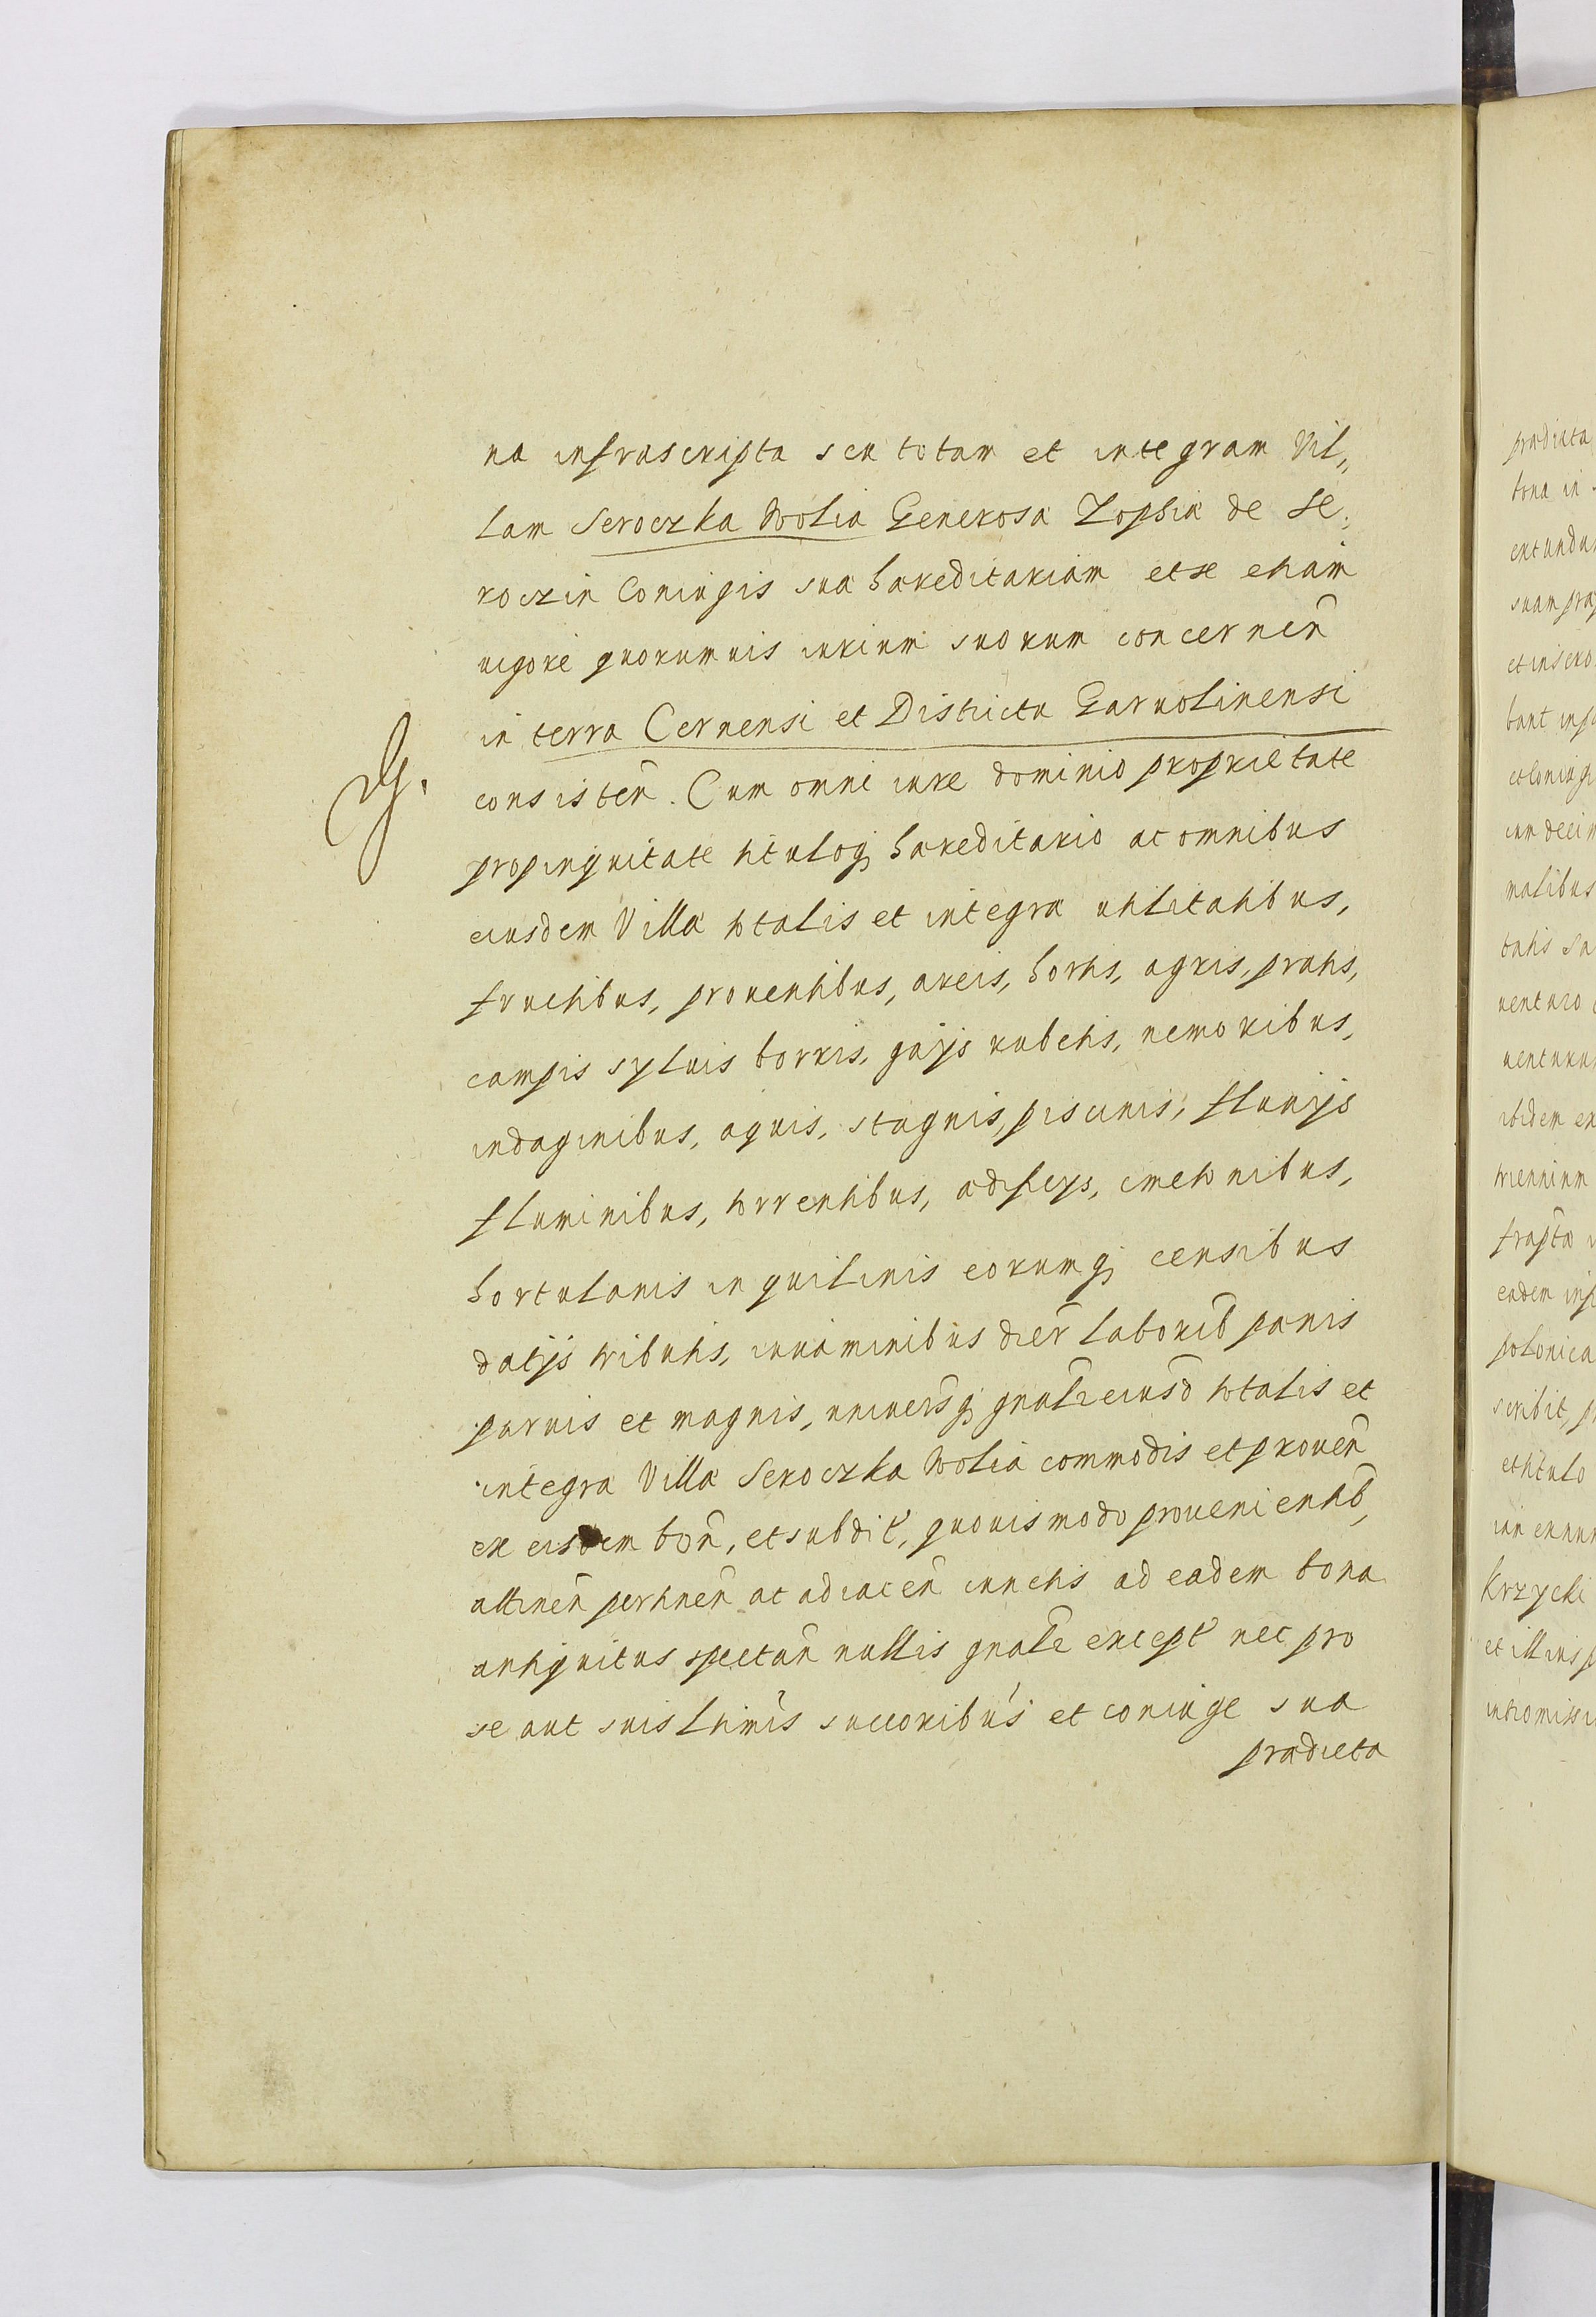 na infrascripta seu totam et integram Vil„
lam Seroczka Wolia Generosæ Zophiæ de Se„
roczin Coniugis suæ hæreditariam et se etiam
uigore quorumuis iurium suorum concernen̄
in terra Cernensi et Districtu Garuolinensi
consisten̄. Cum omni iure dominio proprietate
propinquitate tituloq; hæreditario ac omnibus
eiusdem Villæ totalis et integræ utilitatibus,
fructibus, prouentibus, areis, hortis, agris, pratis,
campis syluis borris, gajis rubetis, nemoribus,
indaginibus, aquis, stagnis, piscinis, fluuijs
fluminibus, torrentibus, adiflcys, cmetonibus,
hortulanis inquilinis eorumq; censibus
datijs tributis, iuuaminibus dier̄ laborib̄ pænis
paruis et magnis, uniuersq̄; gnalr̄ eiusd̄ totalis et
integræ Villæ Seroczka Wolia commodis et prouen̄
ex eisdem bon̄, et subdit̄, quouis modo prouenientib̄,
attinen̄ pertinen̄ ac adiacen̄ cunctis ad eadem bona
antiquitus spectan̄ nullis gnalr̄ except̄ nec pro
se aut suis lthimis succoribus et coniuge sua
prædicta
prædicta
bona in
suam
malibus
uenturo
ibidem
triennium
eadem
polonica
scribit,
et titulo
Krzycki
et illius